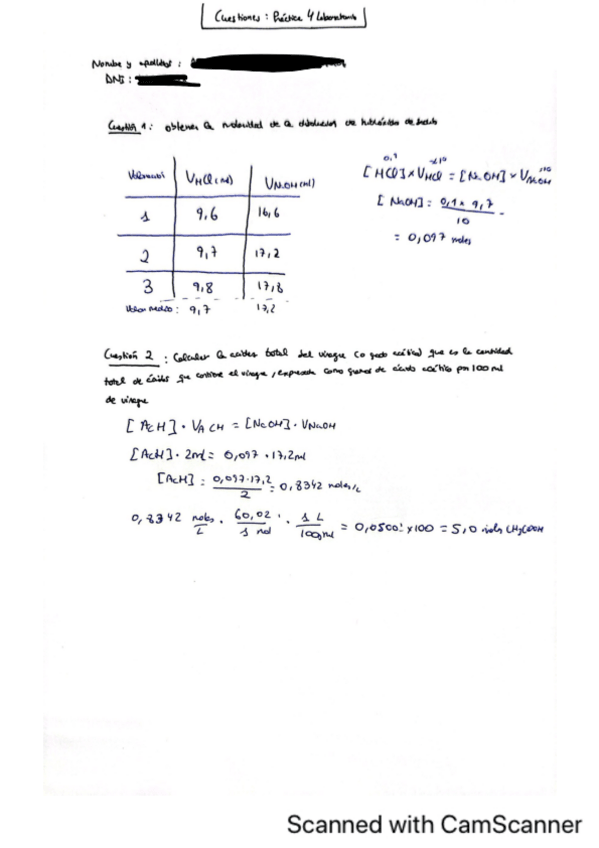 Cuestiones: Práctica 4 Laboratorio
Nombre y apellidos:
DNI:
Cuestión 1: obtener la molaridad de la disolución de hidróxido de sodio
Valoración VHCl (ml) VNaOH (ml)
1 9,6 16,6
2 9,7 17,2
3 9,8 17,8
Valor medio: 9,7 17,2
0,1 x10 10
[HCl] x VHCl = [NaOH] x VNaOH
[NaOH]: 0,1 x 9,7
10
= 0,097 moles
Cuestión 2: Calcular la acidez total del vinagre (o grado acético) que es la cantidad
total de ácidos que contiene el vinagre, expresada como gramos de ácido acético por 100 ml
de vinagre
[AcH] · VACH = [NaOH] · VNaOH
[AcH] · 2ml = 0,097 · 17,2ml
[AcH] : 0,097·17,2 = 0,8342 moles/L
2
0,8342 moles · 60,02 · 1 L = 0,0500 x100 = 5,0 CH3COOH
L 1 mol
Scanned with CamScanner